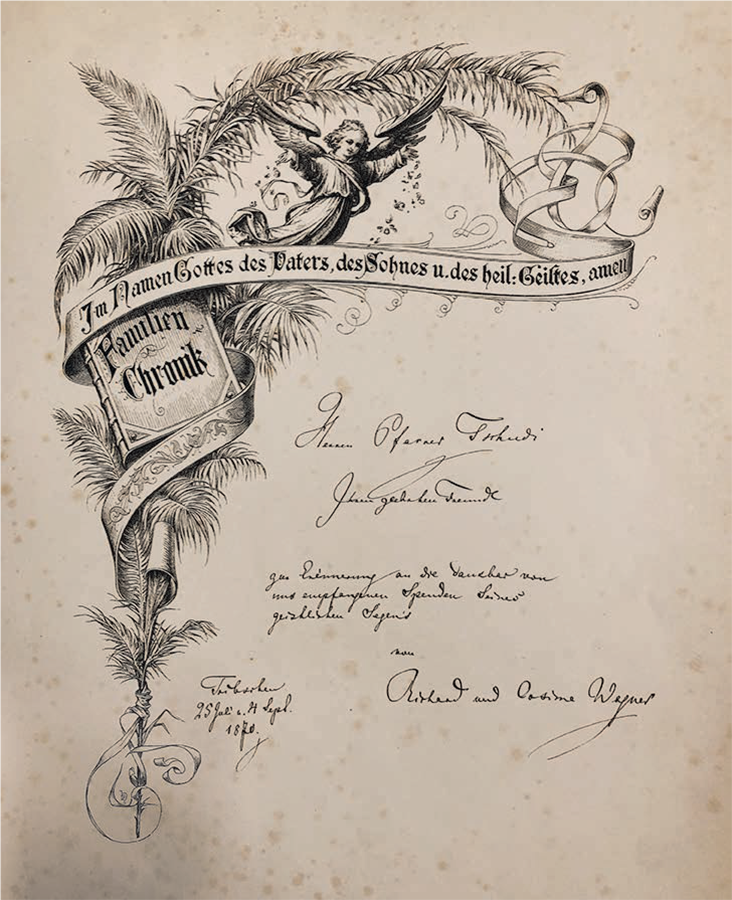 Im Namen Gottes des Vaters, des Sohnes u. des heil: Geistes, amen
Familien
Chronik
Herrn Pfarrer Tschudi
Ihrem geehrten Freunde
zur Erinnerung an die dankbar von
uns empfangenen Spenden Seines
geistlichen Segens
von
Richard und Cosima Wagner
Tribschen
25 Juli u. 4 Sept.
1870.